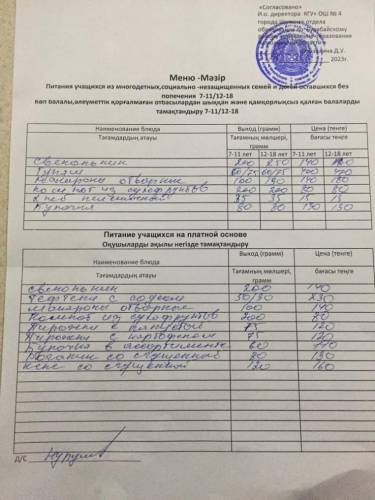 «Согласовано»
И.о. директора КГУ« ОШ № 4
города
отдела
2023г.
Меню -Мәзір
Питания учащихся из многодетных,социально -незащищенных семей и детей оставшихся без
попечения 7-11/12-18
көп балалы,әлеуметтік қорғалмаған отбасылардан шыққан және қамқорлықсыз қалған балаларды
тамақтандыру 7-11/12-18
Наименование блюда Выход (грамм) Цена (тенге)
Тағамдардың атауы Тағамның мөлшері, грамм бағасы теңге
7-11 лет 12-18 лет 7-11 лет 12-18 лет
Свекольник 200 250 140
Гуляш
Макароны отварные 100 140 180
Компот из сухофруктов 200 200 80 80
Хлеб пшеничный 35 35 15 15
Булочка 80 80 130 130
Питание учащихся на платной основе
Оқушыларды ақылы негізде тамақтандыру
Наименование блюда Выход (грамм) Цена (тенге)
Тағамдардың атауы Тағамның мөлшері, грамм бағасы теңге
Свекольник 200 140
Тефтели с соусом
Макароны отварные 100 140
Компот из сухофруктов 200 80
Пирожки с 75 120
Пирожки с картофелем 75 120
Булочка в ассортименте 60
Рогалик со сгущенкой 80 130
Кекс со сгущенкой 120 160
д/с